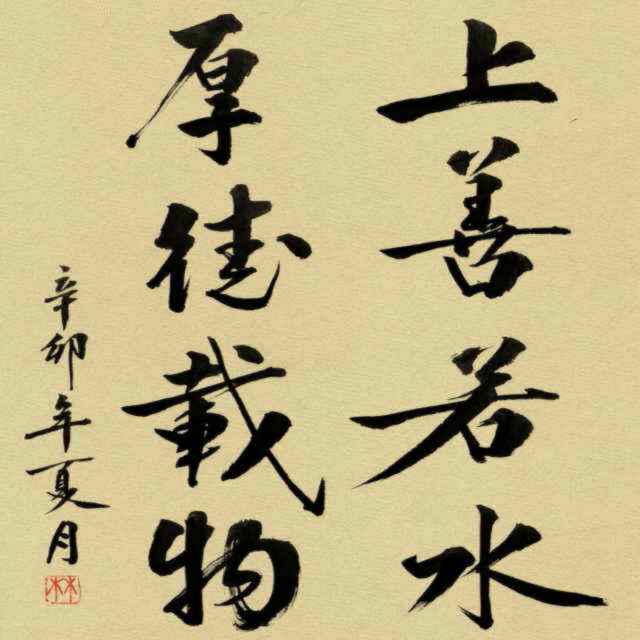 上善若水
厚德载物
辛卯年夏月
林